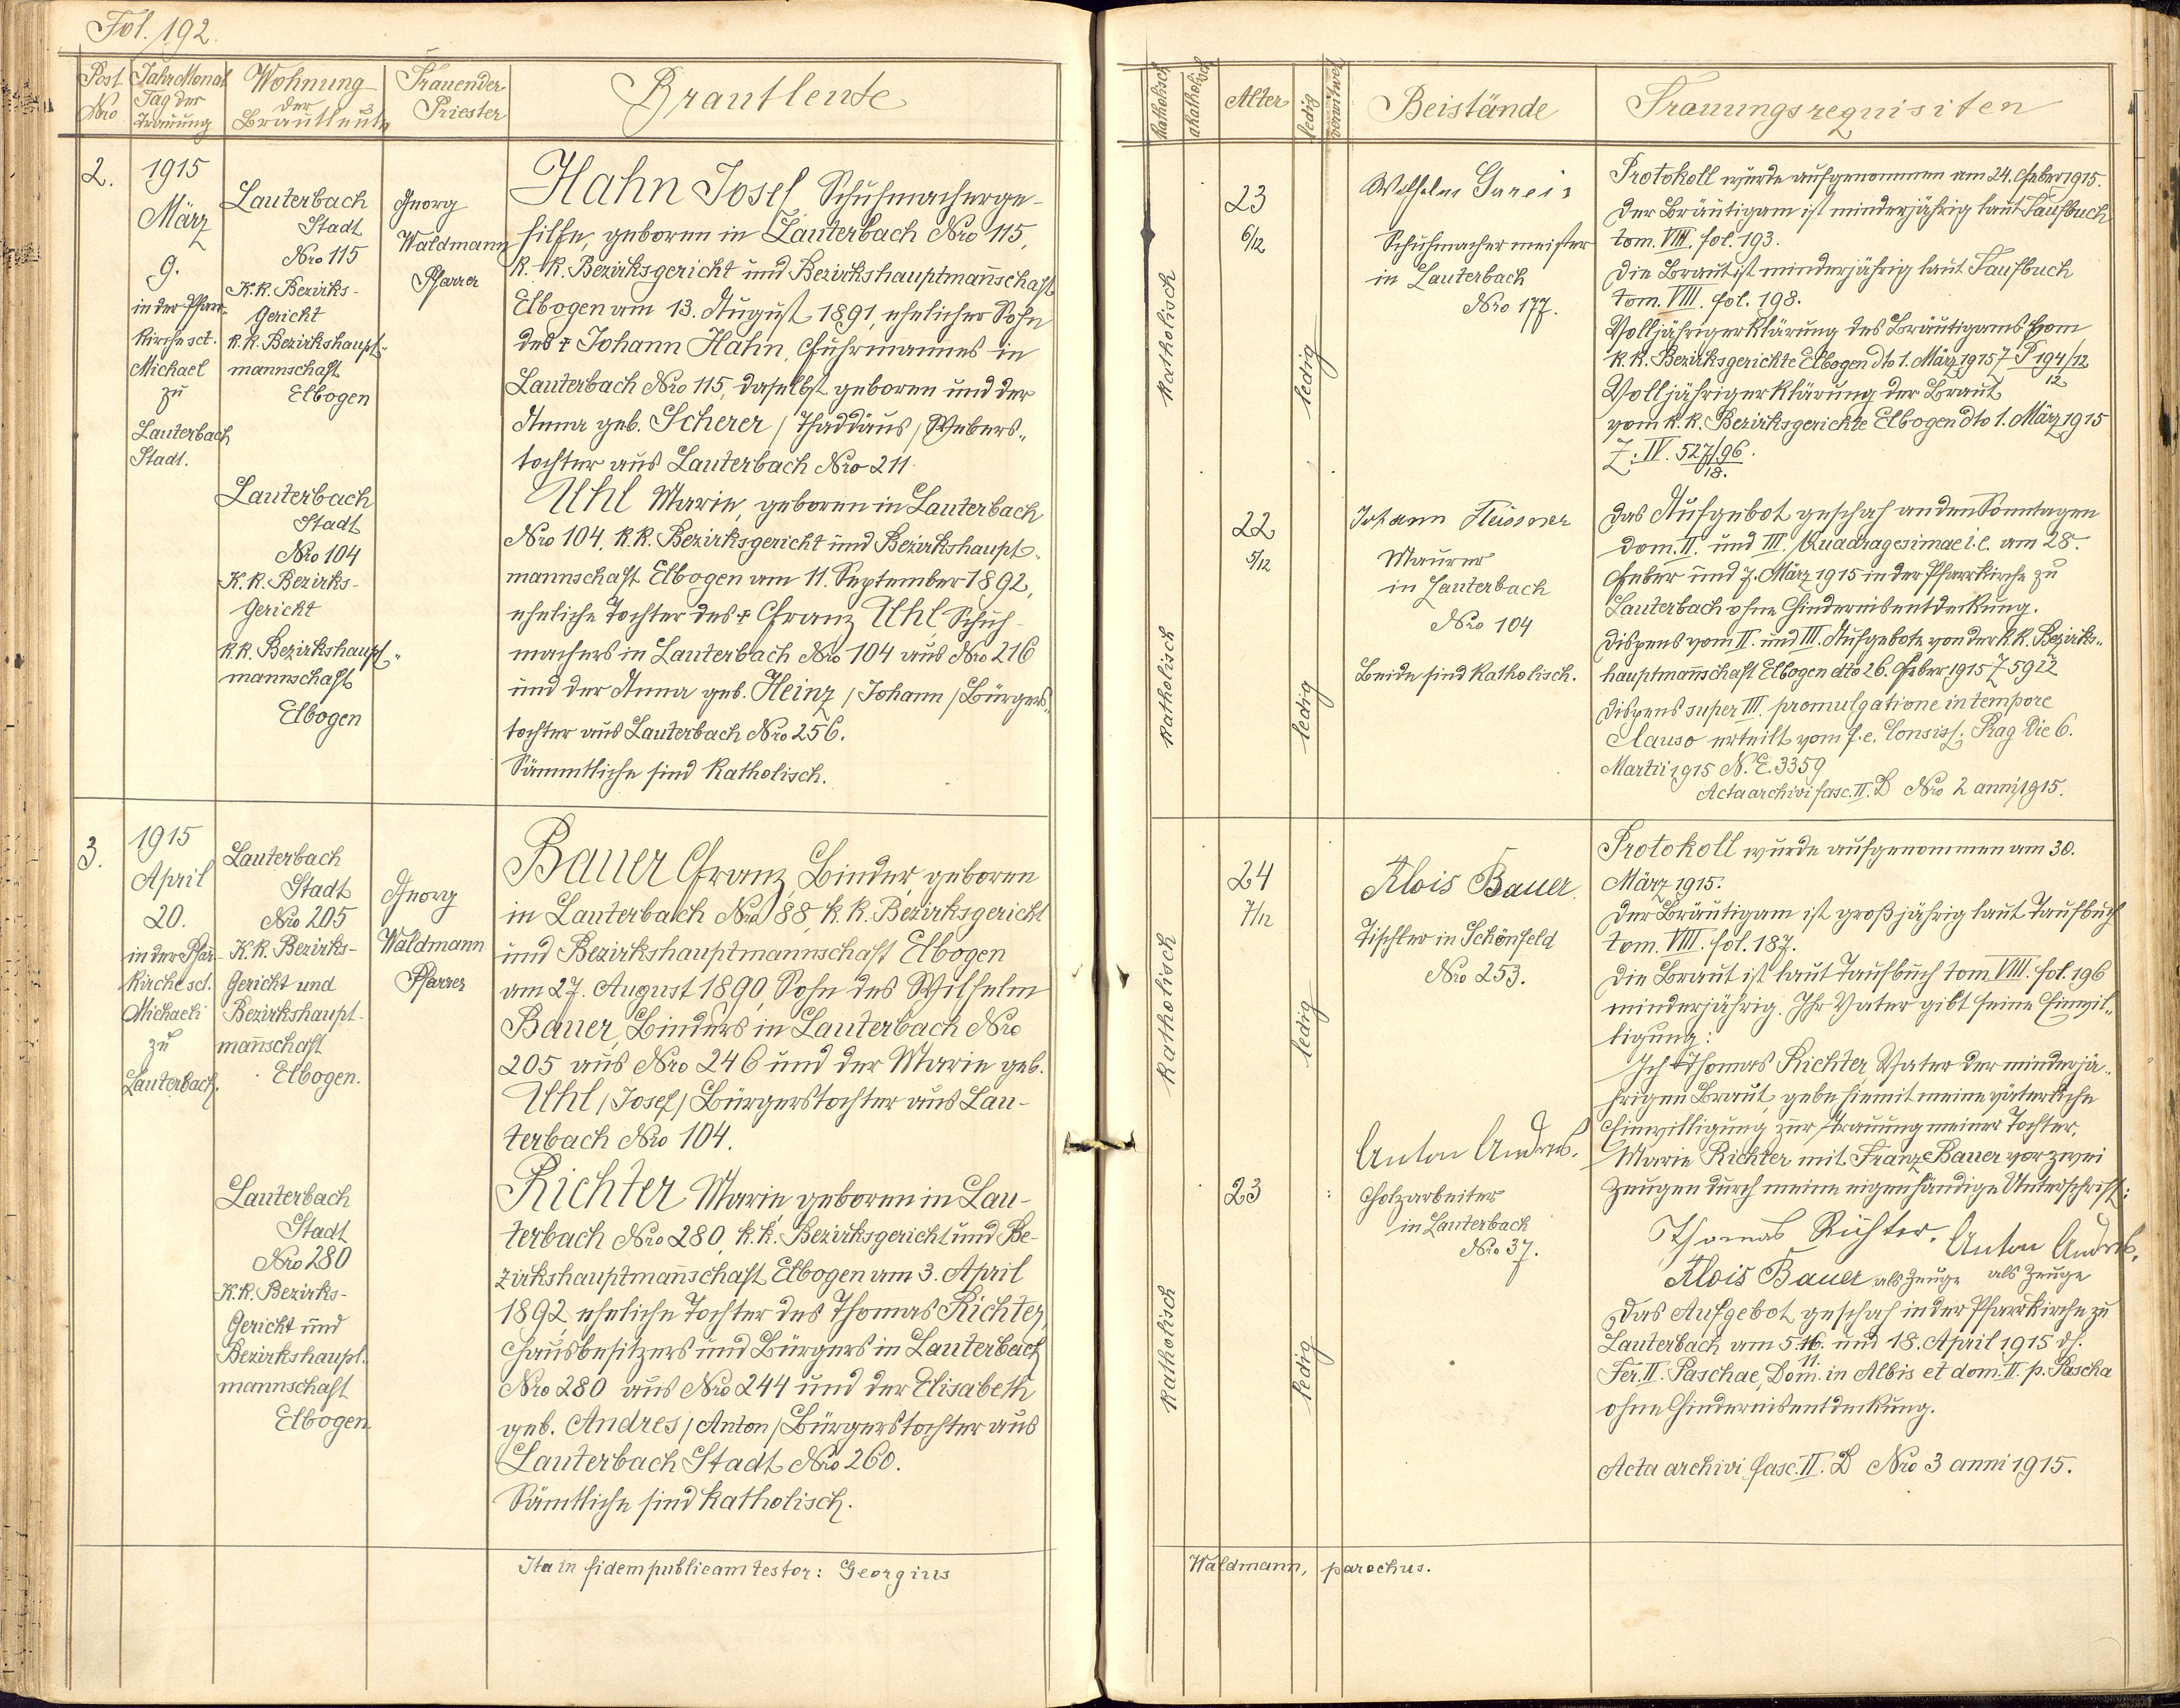 Fol. 192.
Post Nro
Jahr Monat
Tag der
Trauung
Wohnung
der
Brautleute
Trauender
Priester
Brautleute
2.
1915
März
9.
in der Pfarr-
kirche sct.
Michael
zu
Lauterbach
Stadt.
Lauterbach
Stadt
Nro 115
K.k. Bezirks-
Gericht
k.k. Bezirkshaupt-
mannschaft
Elbogen
Lauterbach
Stadt
Nro 104
K.k. Bezirks-
Gericht
k.k. Bezirkshaupt-
mannschaft
Elbogen
Georg
Waldmann
Pfarrer
Hahn Josef Schuhmacherge-
hilfe, geboren in Lauterbach Nro 115,
k. k. Bezirksgericht und Bezirkshauptmannschaft
Elbogen am 13. August 1891, ehelicher Sohn
des † Johann Hahn, Fuhrmannes in
Lauterbach Nro 115, daselbst geboren und der
Anna geb. Scherer / Thaddäus / Webers-
tochter aus Lauterbach Nro 211.
Uhl Marie, geboren in Lauterbach
Nro 104, k.k. Bezirksgericht und Bezirkshaupt-
mannschaft Elbogen am 11. September 1892,
eheliche Tochter des † Franz Uhl Schuh-
machers in Lauterbach Nro 104 aus Nro 216
und der Anna geb. Heinz / Johann / Bürgers-
tochter aus Lauterbach Nro 256.
Sämmtliche sind katholisch.
3.
1915
April
20.
in der Pfarr-
kirche sct.
Michaeli
zu
Lauterbach.
Lauterbach
Stadt
Nro 205
K.k. Bezirks-
Gericht und
Bezirkshaupt-
mannschaft
Elbogen.
Lauterbach
Stadt
Nro 280
K.k. Bezirks-
Gericht und
Bezirkshaupt-
mannschaft
Elbogen.
Georg
Waldmann
Pfarrer
Bauer Franz, Binder, geboren
in Lauterbach Nro 88, k. k. Bezirksgericht
und Bezirkshauptmannschaft Elbogen
am 27. August 1890, Sohn des Wilhelm
Bauer, Binders in Lauterbach Nro
205 aus Nro 246 und der Marie geb.
Uhl / Josef / Bürgerstochter aus Lau-
terbach Nro 104.
Richter Marie, geboren in Lau-
terbach Nro 280, k.k. Bezirksgericht und Be-
zirkshauptmannschaft Elbogen am 3. April
1892, eheliche Tochter des Thomas Richter,
Hausbesitzers und Bürgers in Lauterbach
Nro 280 aus Nro 244 und der Elisabeth
geb. Andres / Anton / Bürgerstochter aus
Lauterbach Stadt Nro 260.
Sämtliche sind katholisch.
Ita in fidem publicam testor: Georgius
katholisch
akatholisch
Alter
ledig
verwitwet
Beistände
Trauungsrequisiten
katholisch
23
6/12
ledig
Wilhelm Gareis
Schuhmachermeister
in Lauterbach
Nro 177.
katholisch
22
5/12
ledig
Johann
Maurer
in Lauterbach
Nro 104
Beide sind katholisch.
Protokoll wurde aufgenommen am 24. Feber 1915.
Der Bräutigam ist minderjährig laut Taufbuch
tom. VIII. fol. 193.
Die Braut ist minderjährig laut Taufbuch
tom. VIII. fol. 198.
Volljährigerklärung des Bräutigams vom
k.k. Bezirksgerichte Elbogen dto 1. März 1915 Z P 194/12
12
Volljährigerklärung der Braut
vom k.k. Bezirksgerichte Elbogen dto 1. März 1915
Z: IV. 527/96.
18.
Das Aufgebot geschah an den Sonntagen
Dom. II. und III. Quadragesimae i.e. am 28.
Feber und 7. März 1915 in der Pfarrkirche zu
Lauterbach ohne Hindernisentdeckung.
Dispens vom II. und III. Aufgebote von der k.k. Bezirks-
hauptmannschaft Elbogen dto 26. Feber 1915 Z 5922
Dispens super III. promulgatione in tempore
clauso erteilt vom f. e. Consist. Prag die 6.
Martii 1915 N. E. 3359
Acta archivi fasc. II. D Nro 2 anni 1915.
katholisch
24
7/12
ledig
Alois Bauer.
Tischler in Schönfeld
Nro 253.
katholisch
23
ledig
Anton Andres.
Holzarbeiter
in Lauterbach
Nro 37.
Protokoll wurde aufgenommen am 30.
März 1915.
Der Bräutigam ist großjährig laut Taufbuch
tom. VIII. fol. 187.
Die Braut ist laut Taufbuch tom. VIII. fol. 196
minderjährig. Ihr Vater gibt seine Einwil-
ligung:
Ich Thomas Richter, Vater der minderjä-
hrigen Braut, gebe hiemit meine väterliche
Einwilligung zur Trauung meiner Tochter,
Marie Richter mit Franz Bauer vor zwei
Zeugen durch meine eigenhändige Unterschrift:
Thomas Richter. Anton Andres.
Alois Bauer als Zeuge als Zeuge
Das Aufgebot geschah in der Pfarrkirche zu
Lauterbach am 5. 16. und 18. April 1915 d.h.
11.
Fer. II. Paschae, Dom. in Albis et dom. II. p. Pascha
ohne Hindernisentdeckung.
Acta archivi fasc. II. D Nro 3 anni 1915.
Waldmann, parochus.